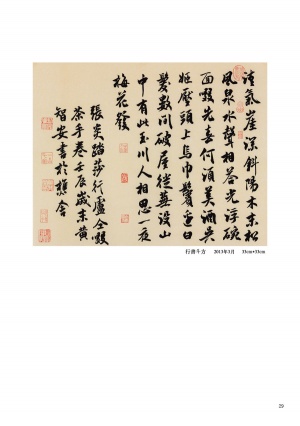 清氣崖深斜陽木末松
風泉水聲相答光浮碗
面啜先春何須美酒吳
姬壓頭上烏巾鬢邊白
髮數間破屋從蕪没山
中有此玉川人相思一夜
梅花發
張炎踏莎行盧仝啜
茶手卷壬辰歲末黄
智安書於舍
行書斗方 2013年3月 33cm×33cm
29